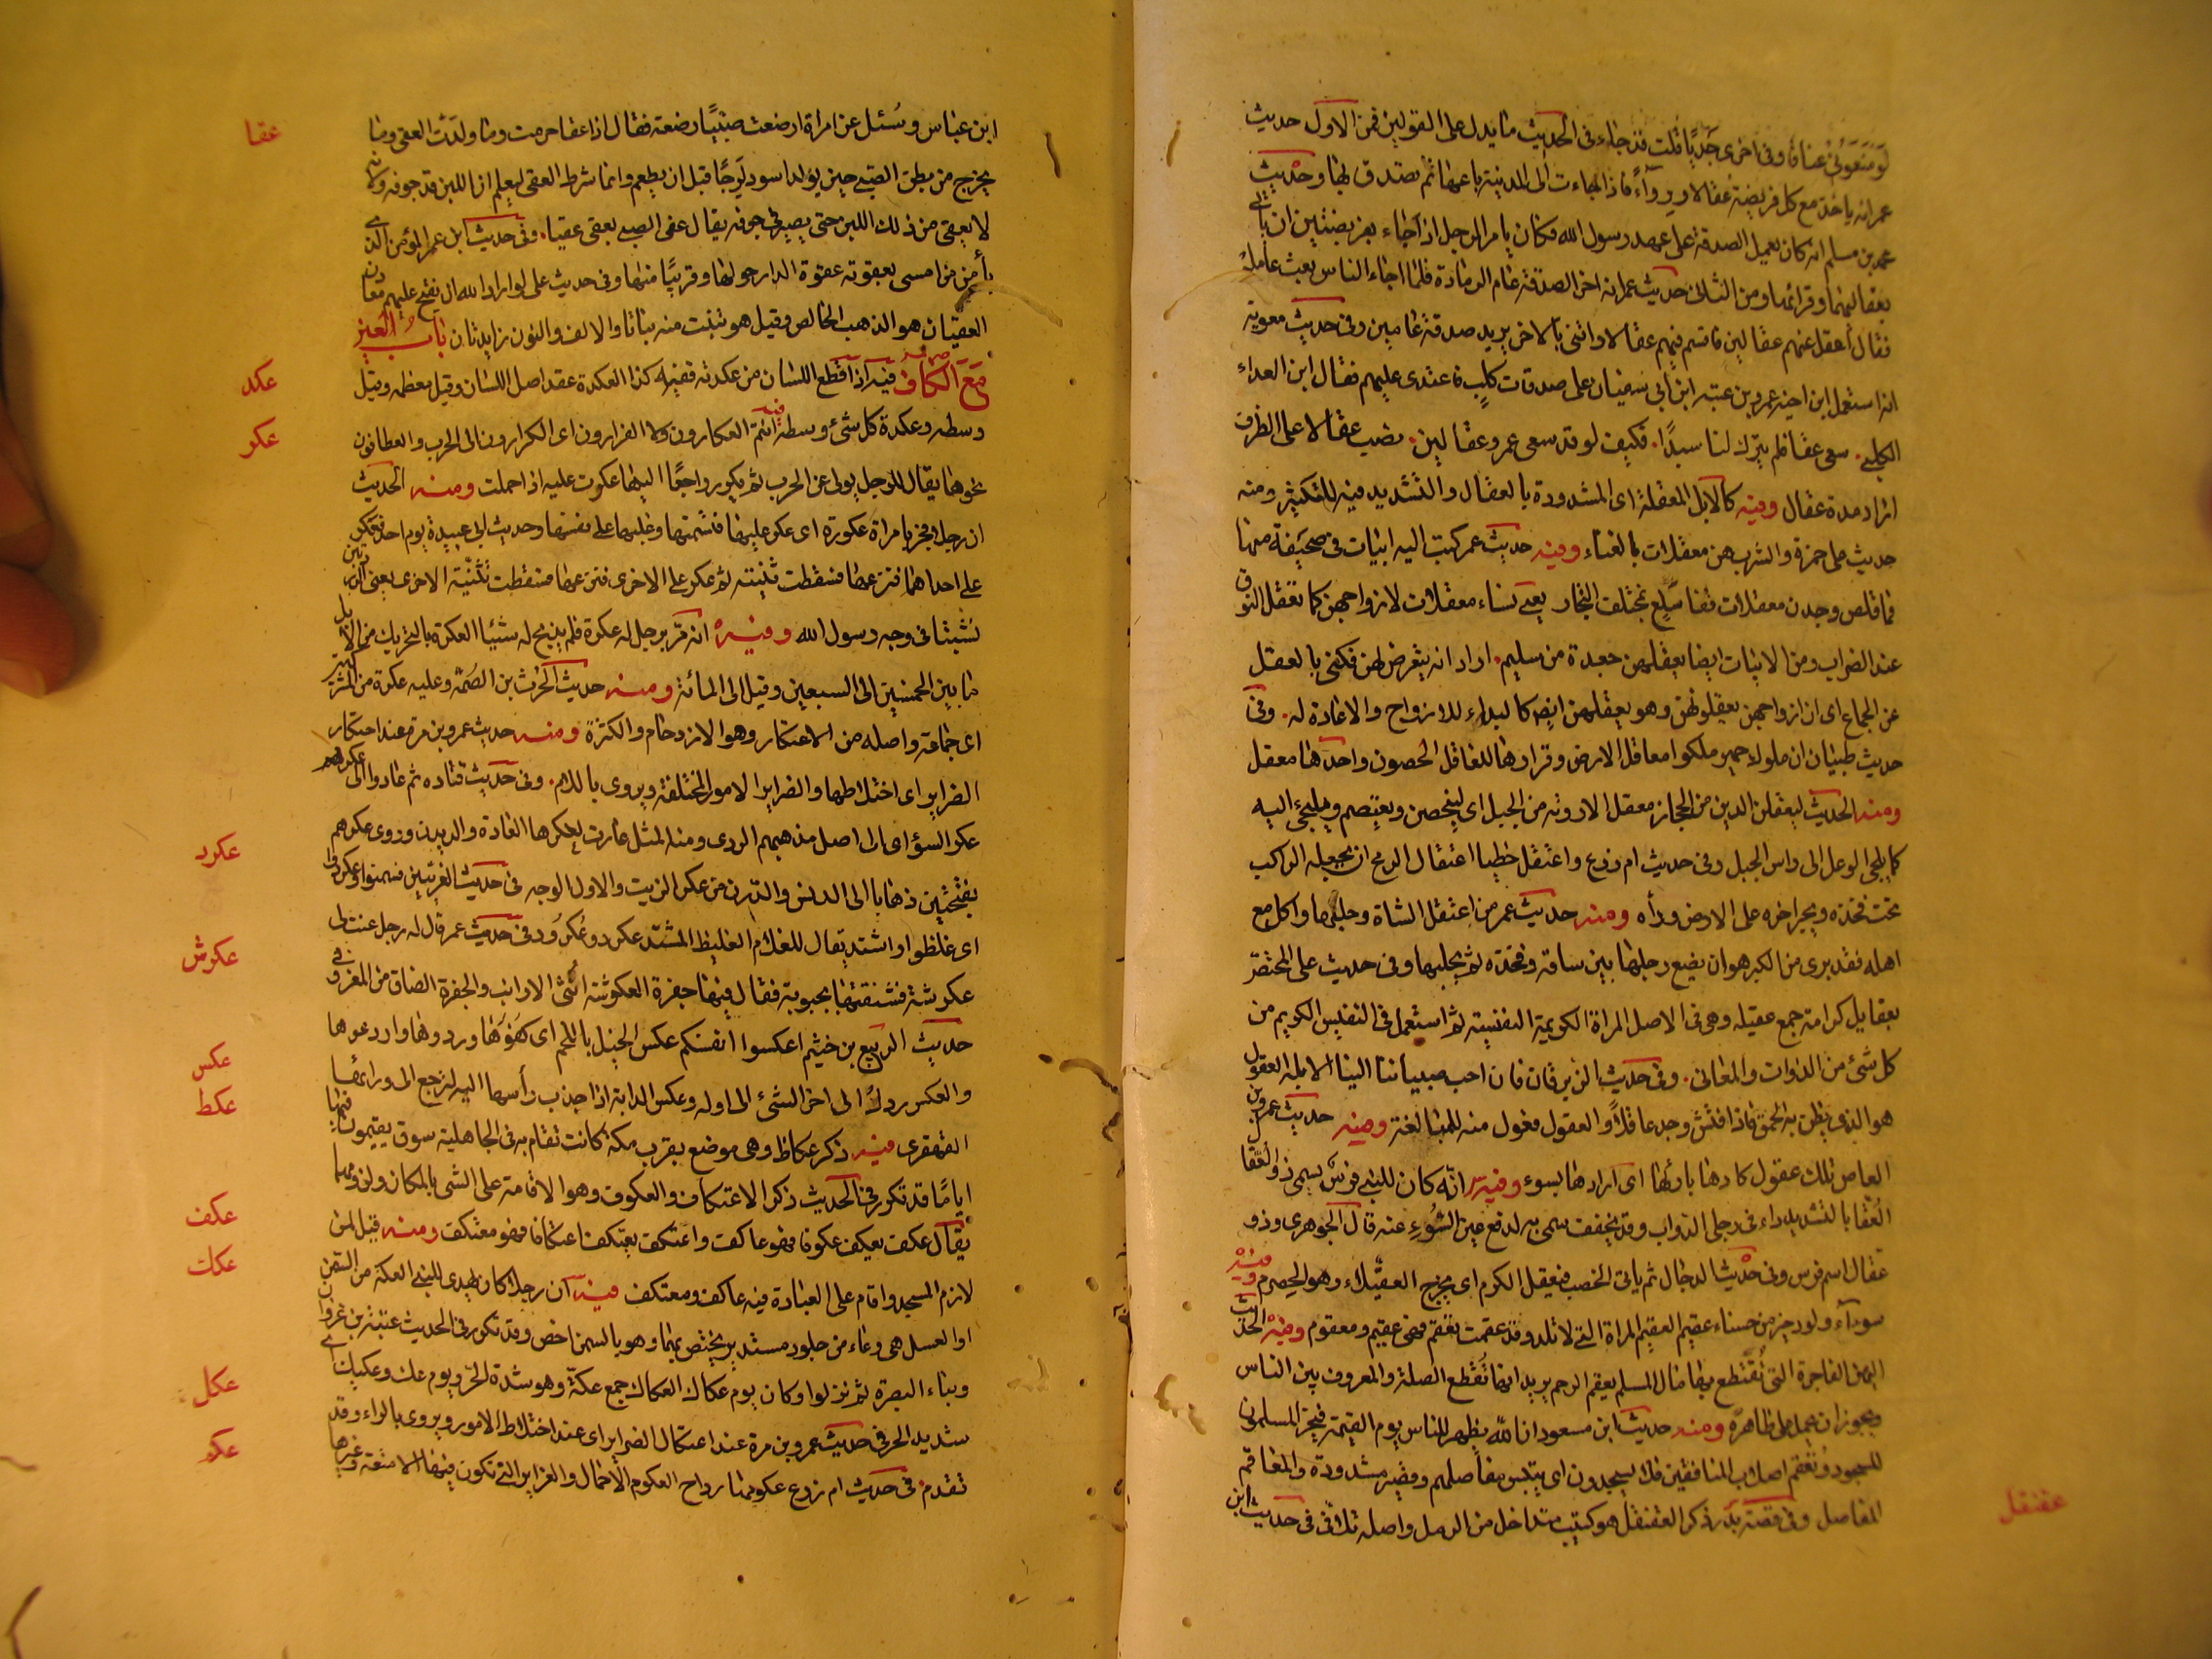 لو منعونى عناقا وفى اخرى جديا قلت قد جاء فى الحديث ما يدل على القولين فمن الاول حديث
عمر انه ياخذ مع كل فريضة عقالا ورواء فاذا جاءت الى المدينة باعها ثم تصدق بها وحديث
محمد بن مسلم انه كان يعمل الصدقة على عهد رسول الله وكان يامر الرجل اذا جاء بفريضتين ان ياتى
بعقاليهما وقرانهما ومن الثانى حديث عمر انه اخر الصدقة عام الرمادة فلما احياء الناس بعث عامله
فقال اعقل عنهم عقالين فاقسم فيهم عقالا واتنى بالاخر يريد صدقة عامين وفى حديث معوية
انه استعمل ابن اخيه عمرو بن عتبه ابن ابى سفيان على صدقات كلب فاعتدى عليهم فقال ابن العداء
الكلبى سعى عقالا فلم يترك لنا سبدا فكيف لو قد سعى عمرو عقالين نصب عقالا على الظرف
اراد مدة عقال وفيه كالابل المعقلة اى المشدودة بالعقال والتشديد فيه للتكثير ومنه
حديث على حمزة والشرب هن معقلات بالفناء وفيه حديث عمر كتب اليه ابيات فى صحيفة منها
فما قلص وجدن معقلات قفا سلع بمختلف التجار يعنى نساء معقلات لازواجهن كما تعقل النوق
عند الضراب ومن الابيات ايضا يعقلهن جعدة من سليم اراد انه يتعرض لهن فكنى بالعقل
عن الجماع اى ان ازواجهن يعقلونهن وهو يعقلهن ايض كالبداء للازواج والاعادة له وفى
حديث ظبيان ان ملوك حمير ملكوا معاقل الارض وقرارها المعاقل الحصون واحدها معقل
ومنه الحديث ليعقلن الدين من الحجاز معقل الاروية من الجبل اى ليتحصن ويعتصم ويلتجئ اليه
كما يلجى الوعل الى راس الجبل وفى حديث ام زرع واعتقل خطيا اعتقال الرمح ان يجعله الراكب
تحت فخذه ويجر اخره على الارض وراه ومنه حديث عمر من اعتقل الشاة وحلبها واكل مع
اهله فقد برى من الكبر هو ان يضع رجلها بين ساقه وفخذه ثم يحلبها وفى حديث على المختص
بعقايل كرامته جمع عقيله وهى فى الاصل المراة الكريمة النفيسة ثم استعمل فى النفيس الكريم من
كل شئ من الذوات والمعانى وفى حديث الزبرقان فان احب صبياننا الينا الابله العقول
هو الذى يظن به الحمق فاذا فتش وجد عاقلا والعقول فعول منه للمبالغة ومنه حديث عمرو بن
العاص تلك عقول كادها بارئها اى ارادها بسوء وفيه انه كان للنبى فرس يسمى ذو العقال
العقال بالتشديد داء فى رجلى الدواب وقد يخفف سمى به لدفع عين السوء عنه قال الجوهرى وذو
عقال اسم فرس وفى حديث الدجال ثم ياتى الخصب فيعقل الكرم اى يخرج العقيلاء وهو الحصرم وفيه
سوداء ولود خير من حسناء عقيم العقيم المراة التى لا تلد وقد عقمت تعقم فهى عقيم ومعقوم ومنه الحديث
اليمين الفاجرة التى تقتطع بها مال المسلم يعقم الرحم يريد انها تقطع الصلة والمعروف بين الناس
ويجوز ان يحمل على ظاهره ومنه حديث ابن مسعود ان الله يظهر للناس يوم القيمة فيخر المسلمون
للسجود وتعقم اصلاب المنافقين فلا يسجدون اى ييبس مفاصلهم وتصير مشدودة والمعاقم
المفاصل وفى قصة بدر ذكر العقنقل هو كثيب متداخل من الرمل واصله ثلاثى فى حديث ابن
عقنقل
ابن عباس وسئل عن امراة ارضعت صبيا رضعة فقال اذا عقا حرمت وما ولدت العقى وما
عقا
يخرج من بطن الصبى حين يولد اسود لزجا قبل ان يطعم وانما شرط العقى ليعلم ان اللبن قد جوفه ولانه
لا يعقى من ذلك اللبن حتى يصير فى جوفه يقال عقى الصبى يعقى عقيا وفى حديث ابن عمر المؤمن الذى
يأمن من امسى بعقوته عقوة الدار حولها وقريبا منها وفى حديث على لو اراد الله ان يفتح عليهم معادن
العقيان هو الذهب الخالص وقيل هو ينبت منه نباتا والالف والنون زايدتان باب العين
مع الكاف فيه اذا قطع اللسان من عكدته ففيه كذا العكدة عقد اصل اللسان وقيل معظمه وقيل
عكد
وسطه وعكدة كل شئ وسطه فيه انتم العكارون ولا الفرارون اى الكرارون الى الحرب والعطافون
عكر
نحوها يقال للرجل يولى عن الحرب ثم يكر راجعا اليها عكر وعكرت عليه اذا حملت ومنه الحديث
ان رجلا فجر بامراة عكورة اى عكر عليها فتسنمها وغلبها على نفسها وحديث ابى عبيدة يوم احد فعكر
على احداهما فنزعها فسقطت ثنيته ثم عكر على الاخرى فنزعها فسقطت ثنيته الاخرى يعنى الزردتين
نشبتا فى وجه رسول الله وفيه انه مر برجل له عكرة فلم يذبح له شيئا العكرة بالتحريك من الابل
ما بين الخمسين الى السبعين وقيل الى المائة ومنه حديث الحرث بن الصمة وعليه عكرة من المشركين
اى جماعة واصله من الاعتكار وهو الازدحام والكثرة ومنه حديث عمرو بن مرة عند اعتكار
الضراير اى اختلاطها والضراير الامور المختلفة ويروى باللام وفى حديث قتاده ثم عادوا الى عكرهم
عكر السؤ اى الى اصل مذهبهم الردى ومنه المثل عادت لعكرها العادة والديدن وروى عكرهم
بفتحتين ذهابا الى الدنس والدرن من عكر الزيت والاول الوجه فى حديث العرنيين فسمنوا وعكردوا
عكرد
اى غلظوا واشتد يقال للغلام الغليظ المشتد عكرد وعكرود وفى حديث عمر قال له رجل عنت لى
عكرشة فشنقتها بجبوبة فقال فيها جفرة العكرشة انثى الارانب والجفرة العناق من المعز وفى
عكرش
حديث الربيع بن خثيم اعكسوا انفسكم عكس الخيل باللجم اى كفوها وردوها واردعوها
والعكس ردك الى اخر الشئ الى اوله وعكس الدابة اذا جذب رأسها اليه لترجع الى ورائها
عكس
القهقرى فيه ذكر عكاظ وهى موضع بقرب مكة كانت تقام به فى الجاهلية سوق يقيمون فيها
عكظ
اياما قد تكرر فى الحديث ذكر الاعتكاف والعكوف وهو الاقامة على الشئ بالمكان ولزومهما
يقال عكف يعكف عكوفا فهو عاكف واعتكف يعتكف اعتكافا فهو معتكف ومنه قيل لمن
عكف
لازم المسجد واقام على العبادة فيه عاكف ومعتكف فيه ان رجلا كان يهدى للنبى العكة من السمن
عكك
او العسل هى وعاء من جلود مستدير يختص بهما وهو بالسمن اخص وقد تكرر فى الحديث عتبة بن غزوان
وبناء البصرة ثم نزلوا وكان يوم عكاك العكاك جمع عكة وهو شدة الحر ويوم عك وعكيك اى
شديد الحر فى حديث عمرو بن مرة عند اعتكال الضراير اى عند اختلاط الامور ويروى بالراء وقد
عكل
تقدم فى حديث ام زرع عكومها رداح العكوم الاحمال والغراير التى تكون فيها الامتعة وغيرها
عكم